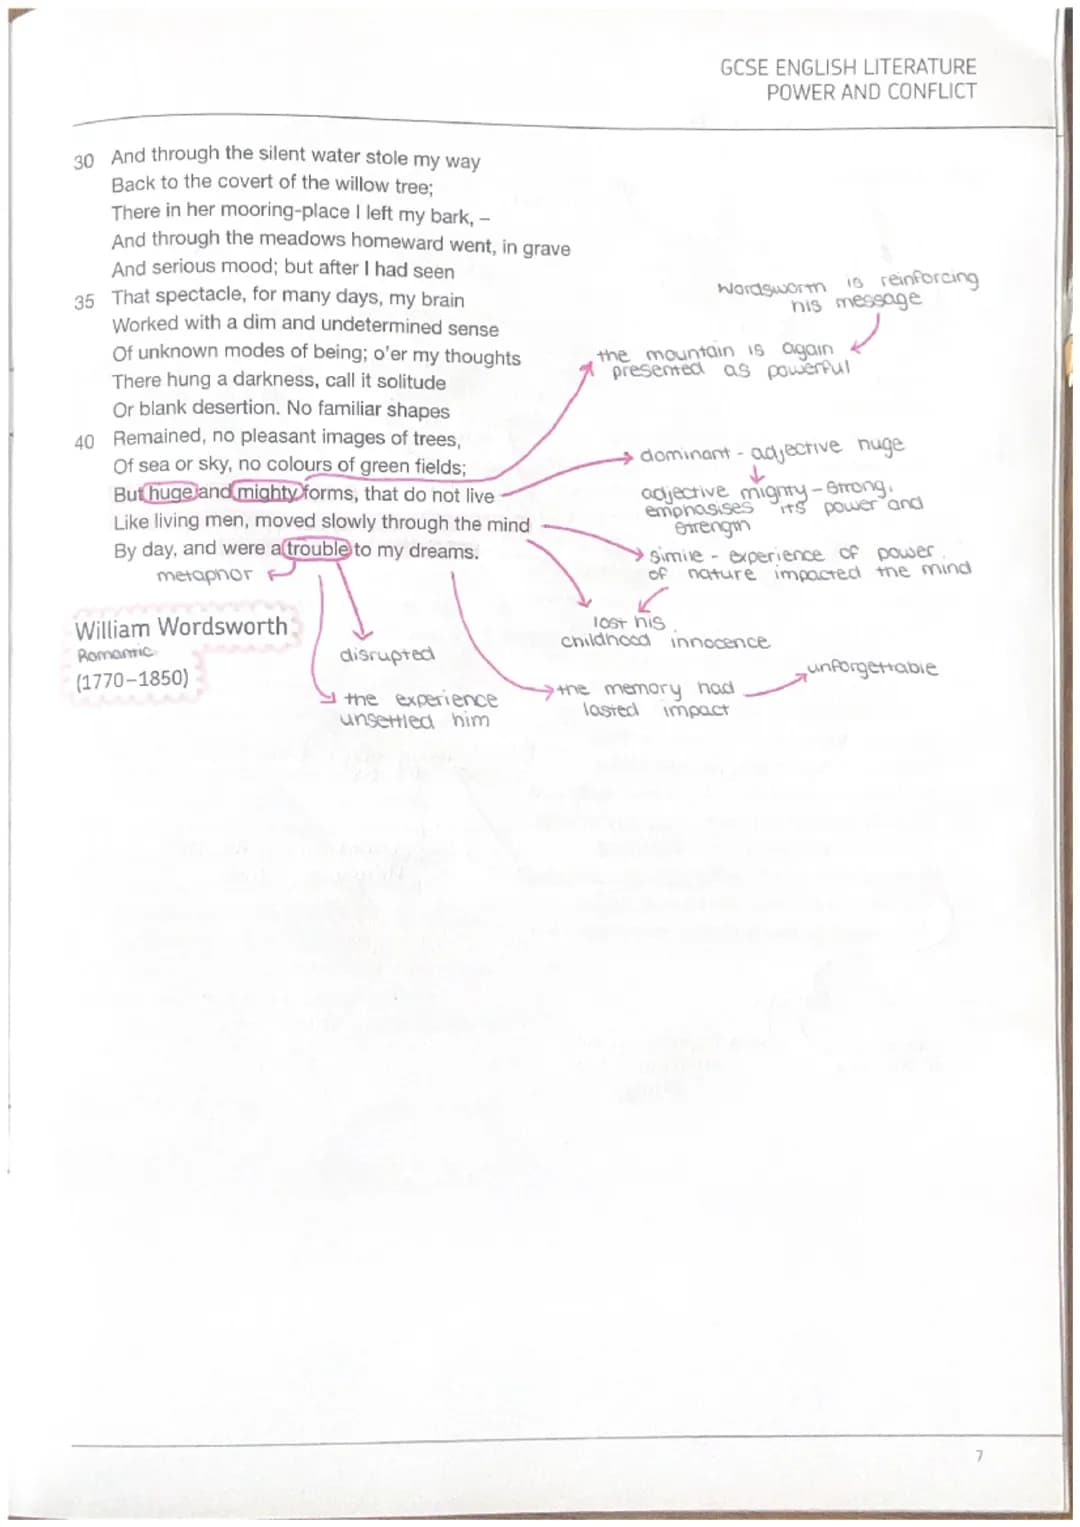 GCSE ENGLISH LITERATURE
POWER AND CONFLICT
30 And through the silent water stole my way
Back to the covert of the willow tree;
There in her mooring-place I left my bark, –
And through the meadows homeward went, in grave
And serious mood; but after I had seen
35 That spectacle, for many days, my brain
Worked with a dim and undetermined sense
Of unknown modes of being; o'er my thoughts
There hung a darkness, call it solitude
Or blank desertion. No familiar shapes
40 Remained, no pleasant images of trees,
Of sea or sky, no colours of green fields;
But huge and mighty forms, that do not live
Like living men, moved slowly through the mind
By day, and were a trouble to my dreams.
Wordsworth is reinforcing
his message
the mountain is again
presented as powerful
dominant - adjective huge
adjective mighty - strong,
emphasises its power and
strength
simile - experience of power
of nature impacted the mind
lost his
childhood innocence
metaphor
disrupted
the experience
unsettled him
the memory had
lasted impact
unforgettable
William Wordsworth
Romantic
(1770–1850)
7